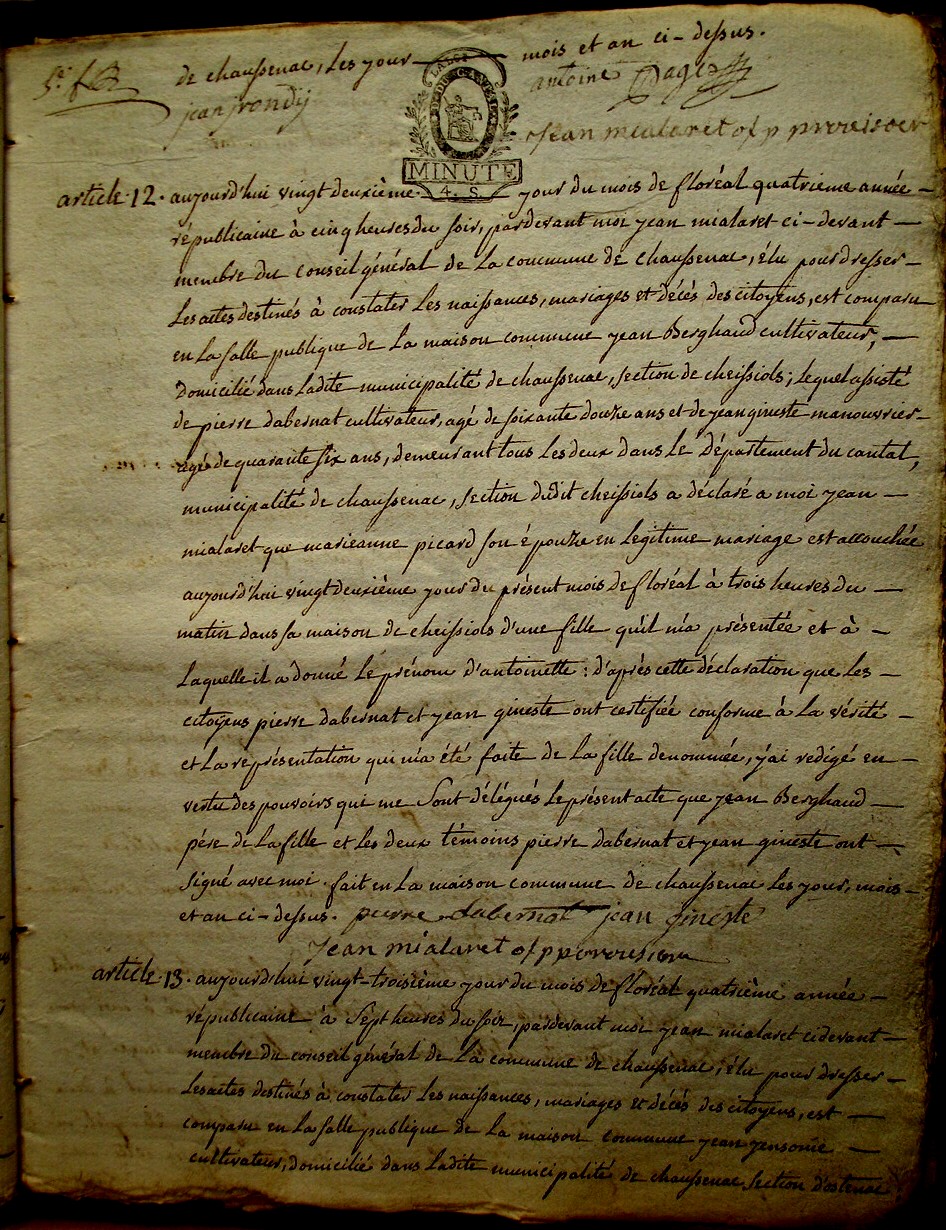 5.e f.t
de chaussenac, les jour — mois et an ci-dessus.
jean frondij antoine Pages
jean mialaret of p provisoer
LA LOI
MINUTE
4. S
article 12. aujourd'hui vingt deuxième — jour du mois de floréal quatrieme année —
républicaine à cinq heures du soir, pardevant moi jean mialaret ci-devant —
membre du conseil général de la commune de chaussenac, élu pour dresser —
les actes destinés à constater les naissances, mariages et décés des citoyens, est comparu
en la salle publique de la maison commune jean Berghaud cultivateur, —
domicilié dans ladite municipalité de chaussenac, section de cheissiols; lequel assisté
de pierre dabernat cultivateur, agé de soixante douze ans et de jean gineste manouvrier —
agé de quarante six ans, demeurant tous les deux dans le département du cantal,
municipalité de chaussenac, section dudit cheissiols a déclaré a moi jean —
mialaret que marieanne picard son épouze en légitime mariage est accouchée
aujourd'hui vingt deuxième jour du présent mois de floréal à trois heures du —
matin dans sa maison de cheissiols d'une fille qu'il m'a présentée et à —
laquelle il a donné le prénom d'antoinette : d'après cette déclaration que les —
citoyens pierre dabernat et jean gineste ont certifiée conforme à la vérité —
et la représentation qui m'a été faite de la fille denommée, j'ai redigé en —
vertu des pouvoirs qui me sont délégués le présent acte que jean Berghaud —
père de la fille et les deux témoins pierre dabernat et jean gineste ont —
signé avec moi. fait en la maison commune de chaussenac les jour, mois —
et an ci-dessus. pierre dabernat jean gineste
jean mialaret of p provisoer
article 13. aujourd'hui vingt-troisième jour du mois de floréal quatrième année —
républicaine à sept heures du soir, pardevant moi jean mialaret ci devant —
membre du conseil général de la commune de chaussenac, élu pour dresser —
les actes destinés à constater les naissances, mariages et décés des citoyens, est —
comparu en la salle publique de la maison commune jean jensonie —
cultivateur, domicilié dans ladite municipalité de chaussenac section d'ostenac